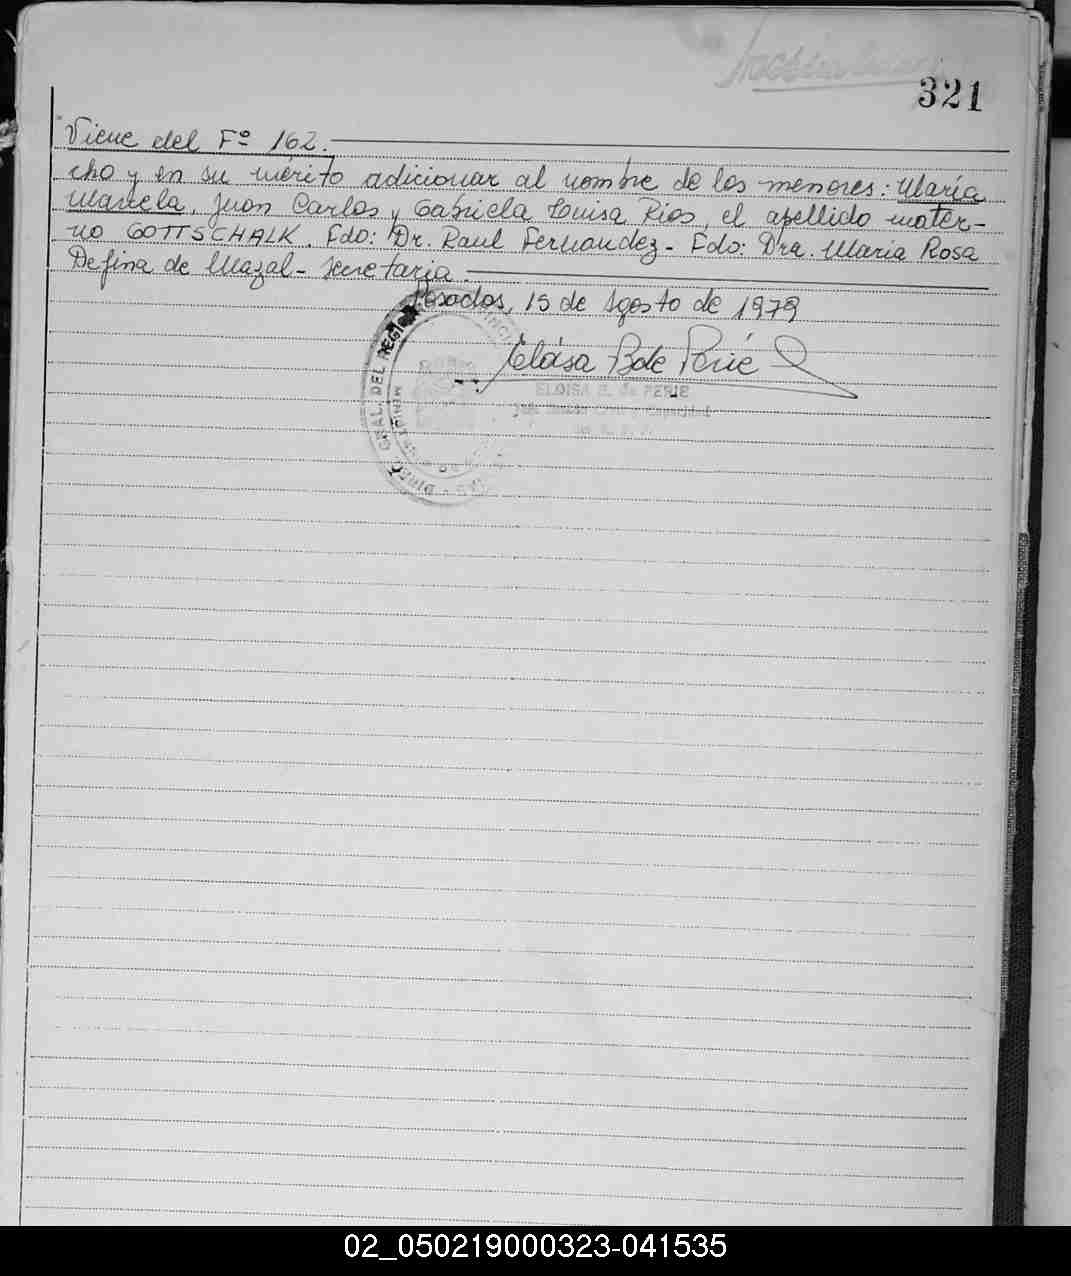 321
Viene del Fº 162.
cho y en su mérito adicionar al nombre de los menores: María
Mariela, Juan Carlos y Gabriela Louisa Rios, el apellido mater-
no GOTTSCHALK. Fdo: Dr. Raul Fernandez - Fdo: Dra. Maria Rosa
Defina de Mazal - Secretaria.
Posadas, 15 de Agosto de 1979
Eloisa B de Perié
ELOISA B. de PERIE
GRAL DEL REGI
02_050219000323-041535